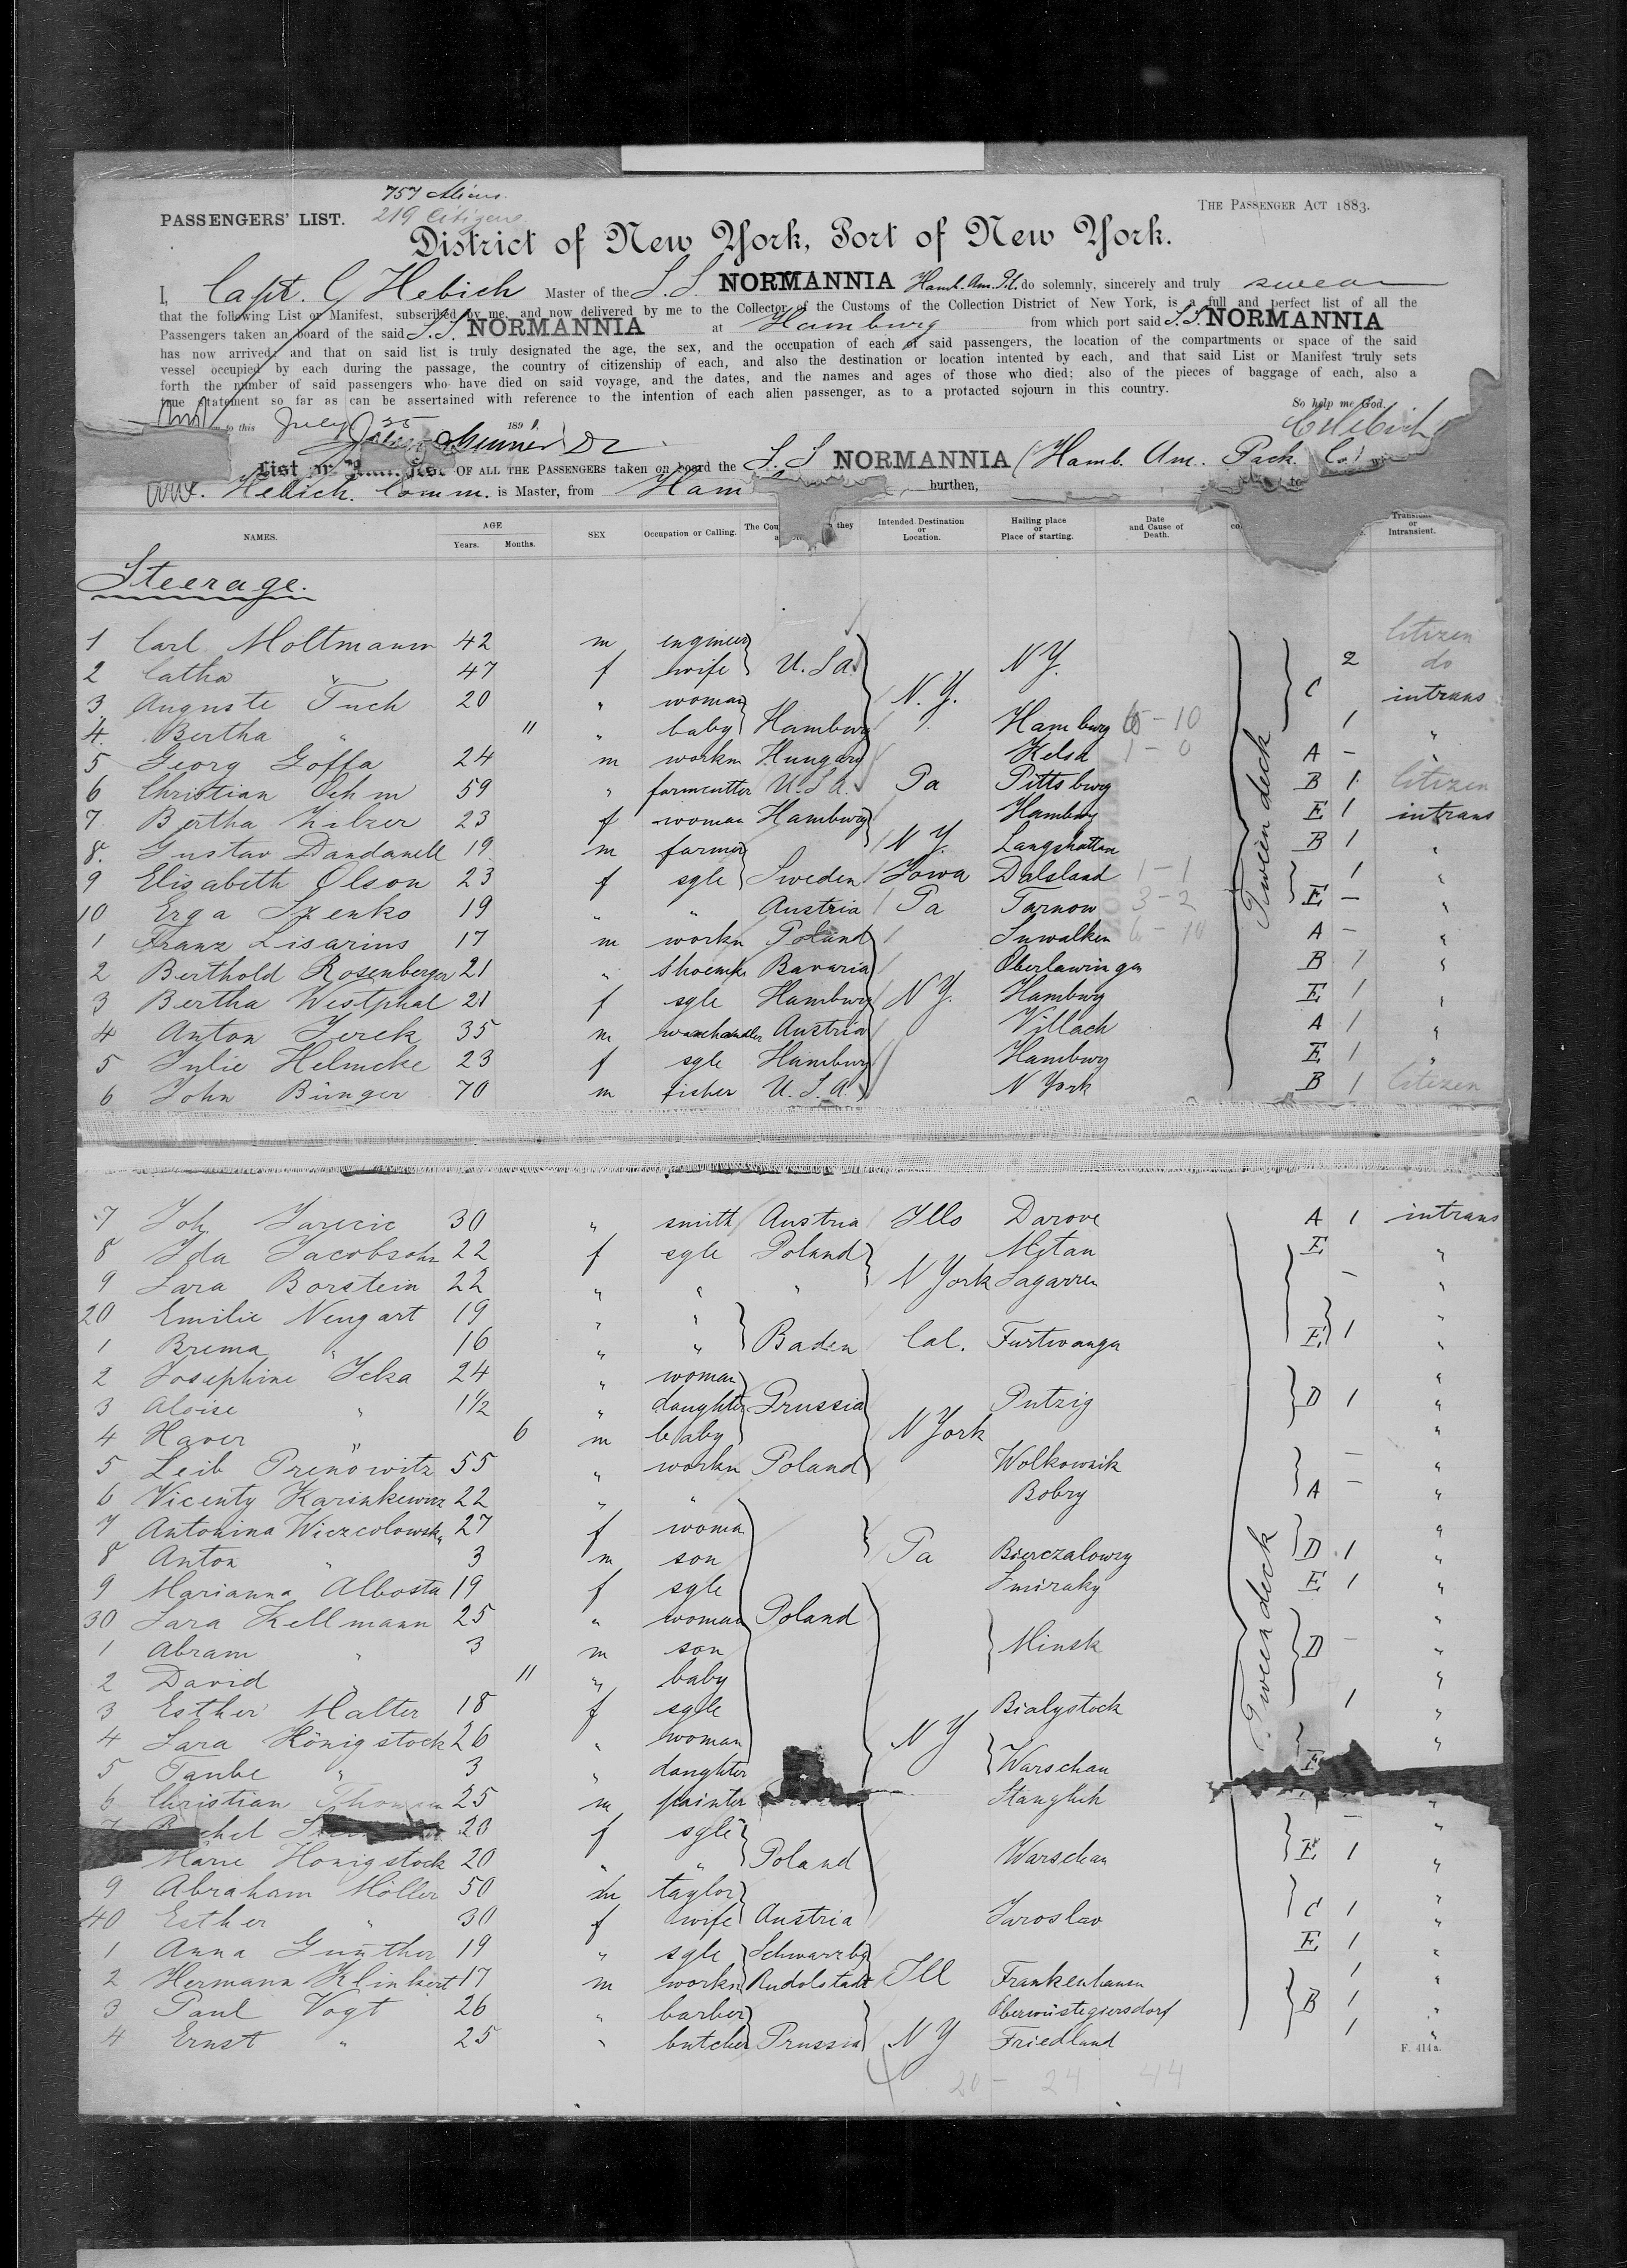 757 Aliens.
219 Citizens
PASSENGERS' LIST.
THE PASSENGER ACT 1883.
District of New York, Port of New York.
I, Capt. C Hebich Master of the S.S. NORMANNIA Hamb. Am. P. do solemnly, sincerely and truly swear
that the following List or Manifest, subscribed by me, and now delivered by me to the Collector of the Customs of the Collection District of New York, is a full and perfect list of all the
Passengers taken an board of the said S.S. NORMANNIA at Hamburg from which port said S.S. NORMANNIA
has now arrived; and that on said list is truly designated the age, the sex, and the occupation of each of said passengers, the location of the compartments or space of the said
vessel occupied by each during the passage, the country of citizenship of each, and also the destination or location intented by each, and that said List or Manifest truly sets
forth the number of said passengers who have died on said voyage, and the dates, and the names and ages of those who died; also of the pieces of baggage of each, also a
true statement so far as can be assertained with reference to the intention of each alien passenger, as to a protacted sojourn in this country.
So help me God.
to this July 25 1891. CHebich
List or Manifest OF ALL THE PASSENGERS taken on board the S.S NORMANNIA (Hamb. Am. Pack. Co)
Hebich. Comm. is Master, from Ham burthen, to
NAMES. AGE Years. Months. SEX Occupation or Calling. The Cou they Intended Destination or Location. Hailing place or Place of starting. Date and Cause of Death. or Intransient.
Steerage.
1 Carl Moltmann 42 m engineer Citizen
2 Catha " 47 f wife U.S.A. N.Y. 2 do
3 Auguste Tuch 20 " woman N.Y. C intrans
4. Bertha " 11 " baby Hamburg Hamburg 1 "
5 Georg Goffa 24 m workm Hungary Kelsa 1-0 A - "
6 Christian Oehm 59 " U.S.A. Pa Pittsburg B 1 Citizen
7 Bertha 23 f woman Hamburg Hamburg E 1 intrans
8. Gustav Dandanell 19 m farmer N.Y. B 1 "
9 Elisabeth Olson 23 f sgle Sweden Iowa Dalsland 1-1 1 "
10 Erga Szenko 19 " " Austria Pa Tarnow 3-2 E - "
1 Franz Lisarius 17 m workn Poland Suwalken A - "
2 Berthold Rosenberger 21 " Bavaria B 1 "
3 Bertha Westphal 21 f sgle Hamburg N.Y. Hamburg E 1 "
4 Anton Jerek 35 m Austria Villach A 1 "
5 Julie Helmcke 23 f sgle Hamburg Hamburg E 1 "
6 John Bünger 70 m fisher U.S.A. N York B 1 Citizen
Tween deck
7 Joh Jarecic 30 " smith Austria Ills Darove A 1 intrans
8 Ida Jacobsohn 22 f sgle Poland Mitau E "
9 Sara Borstein 22 " " " N York Sagarren - "
20 Emilie Neugart 19 " " "
1 Brema " 16 " " Baden Cal. Furtwangn E 1 "
2 Josephine Icka 24 " woman "
3 Aloise " 1½ " daughter Prussia Putzig D 1 "
4 Haver " 6 m baby N York "
5 Leib Prenowitz 55 " workn Poland Wolkownik - "
6 Vicenty Karinkewicz 22 " " Bobry A - "
7 Antonina Wierzcolowska 27 f woma "
8 Anton " 3 m son Pa Bierczalowzy D 1 "
9 Marianna Albosta 19 f sgle E 1 "
30 Sara Kellmann 25 " woman Poland "
1 Abram " 3 m son Minsk D - "
2 David " 11 " baby "
3 Esther Malter 18 f sgle Bialystock 1 "
4 Sara Königstock 26 " woman N Y "
5 Taube " 3 " daughter Warschau
6 Christian 25 m painter "
20 f sgle - "
Marie Honigstock 20 " " Poland Warschau E 1 "
9 Abraham Möller 50 m taylor "
40 Esther " 30 f wife Austria Jaroslav C 1 "
1 Anna Gunther 19 " sgle Schwarzbg E 1 "
2 Hermann Klinkert 17 m workn Rudolstadt Ill Frankenhausn 1 "
3 Paul Vogt 26 " barber Oberwüstegiersdorf B 1 "
4 Ernst " 25 " butcher Prussia N Y Friedland 1 "
Tween deck
F. 414a.
20- 24 44